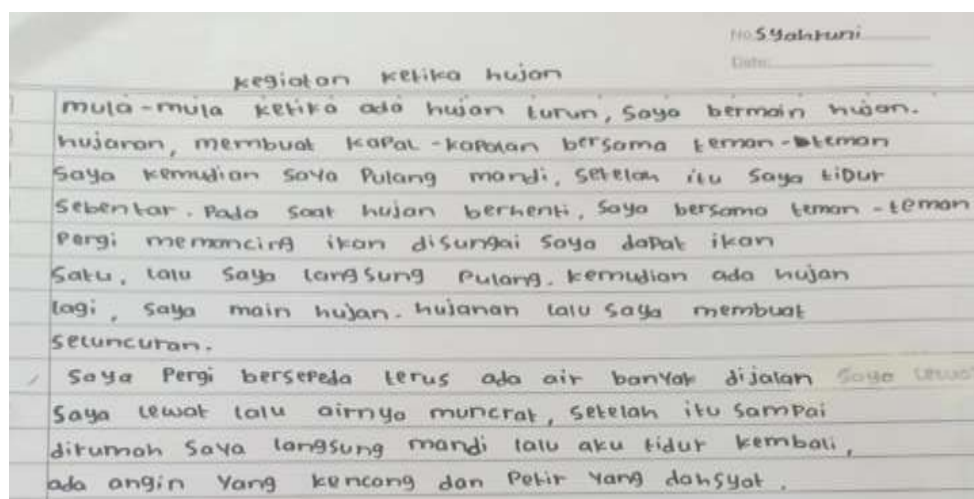 No. Syahruni
Date:
kegiatan ketika hujan
mula-mula ketika ada hujan turun, saya bermain hujan.
hujanan, membuat kapal-kapalan bersama teman-teman
saya kemudian saya pulang mandi, setelah itu saya tidur
sebentar. Pada saat hujan berhenti, saya bersama teman-teman
Pergi memancing ikan disungai saya dapat ikan
satu, lalu saya langsung pulang. kemudian ada hujan
lagi, saya main hujan-hujanan lalu saya membuat
seluncuran.
Saya Pergi bersepeda terus ada air banyak dijalan saya lewat
saya lewat lalu airnya muncrat, setelah itu sampai
dirumah saya langsung mandi lalu aku tidur kembali,
ada angin yang kencang dan Petir yang dahsyat.